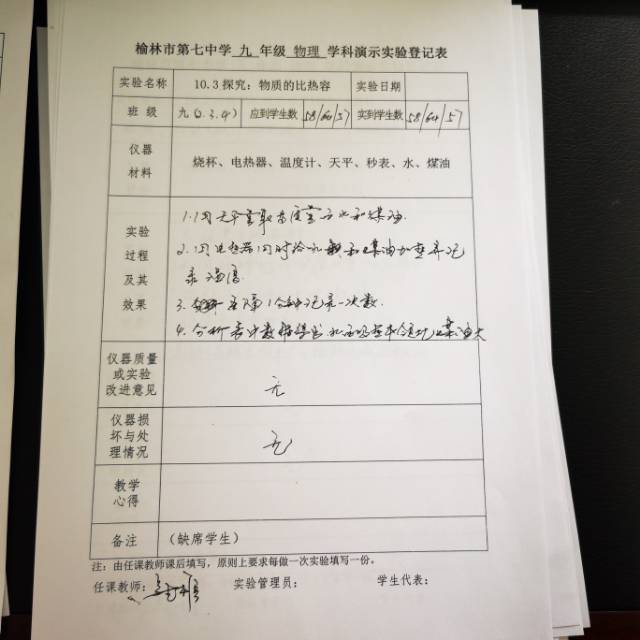 榆林市第七中学 九 年级 物理 学科演示实验登记表
实验名称 10.3 探究：物质的比热容 实验日期
班 级 九(2.3.4) 应到学生数 58/60/57 实到学生数 58/60/57
仪器
材料 烧杯、电热器、温度计、天平、秒表、水、煤油
实验
过程
及其
效果
1.用天平量取质量 水和煤油.
2.用电热器同时给水和煤油加热并记
录温度
3. 每隔1分钟记录一次数.
4.分析表中数据得出水吸热本领比煤油大
仪器质量
或实验
改进意见 无
仪器损
坏与处
理情况 无
教学
心得
备注 (缺席学生)
注：由任课教师课后填写，原则上要求每做一次实验填写一份。
任课教师： 实验管理员： 学生代表：